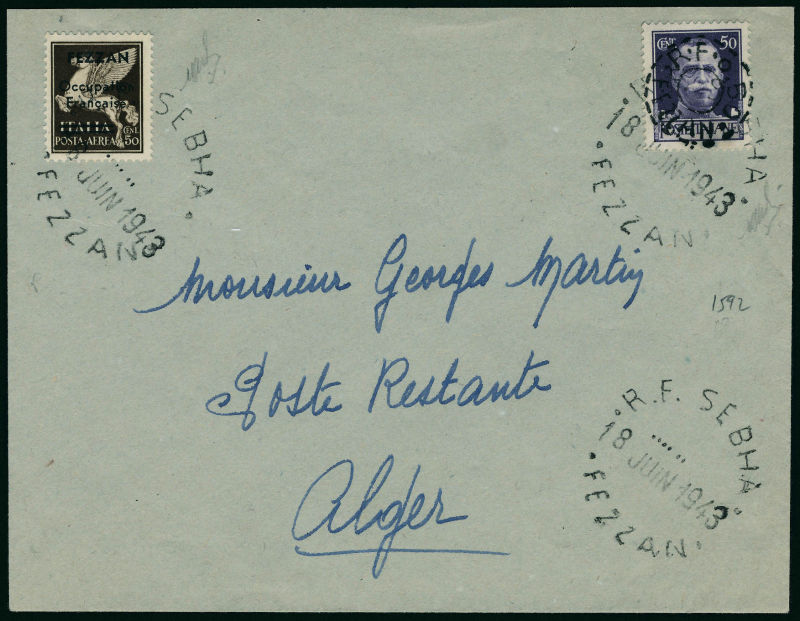 FEZZAN
Occupation
Française
ITALIA
CENT.
POSTA-AEREA 50
SEBHA
JUIN 1943
FEZZAN
CENT. 50
R.F. SEBHA
18 JUIN 1943
FEZZAN
Monsieur Georges Martin
Poste Restante
Alger
1592
R.F. SEBHA
18 JUIN 1943
FEZZAN